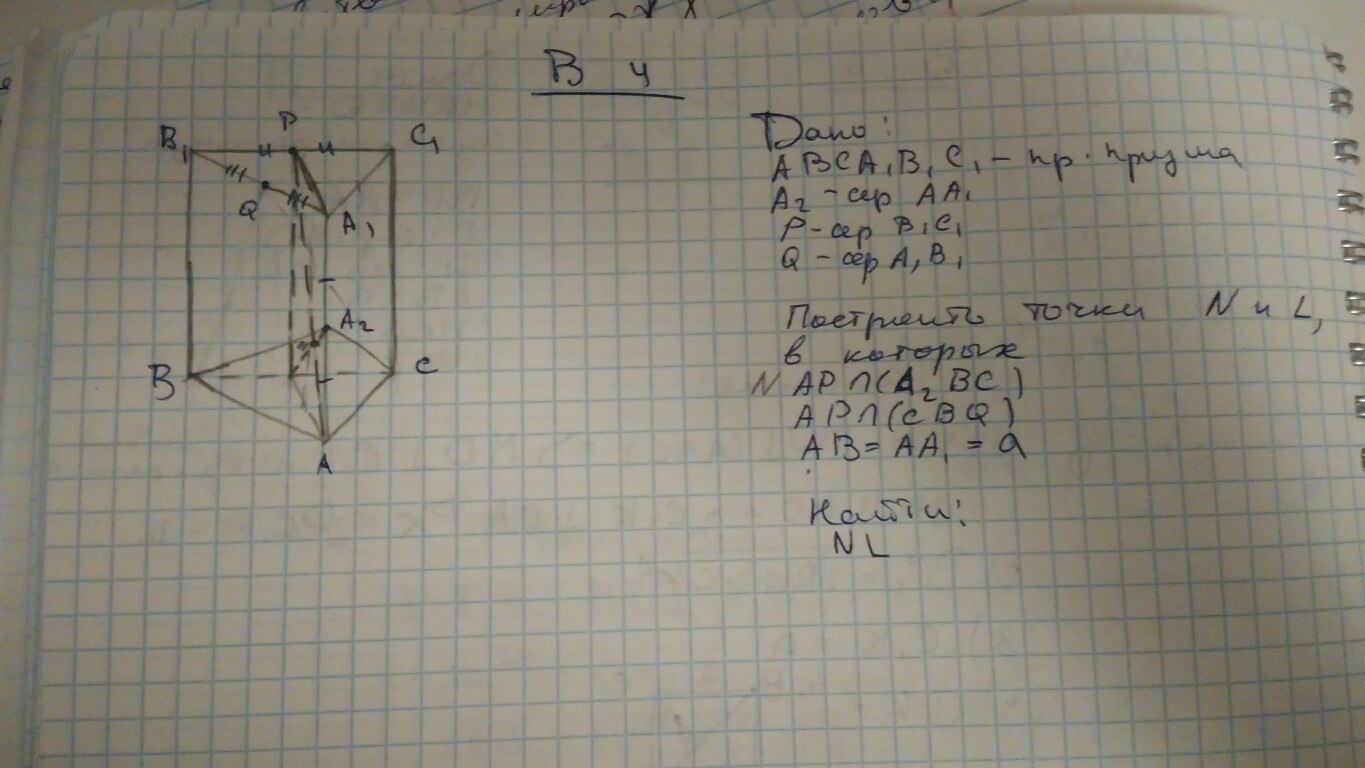 В 4
B₁
P
C₁
Q
A₁
A₂
B
C
A
Дано:
ABCA₁B₁C₁ - пр. призма
A₂ - сер AA₁
P - сер B₁C₁
Q - сер A₁B₁
Построить точки N и L,
в которых
N AP∩(A₂BC)
AP∩(CBQ)
AB = AA₁ = a
Найти:
NL